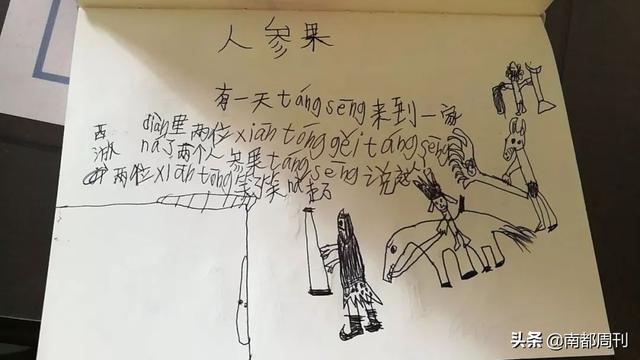 人参果
有一天táng sēng来到一家
diàn里两位xiān tóng gěi táng sēng
ná了两个人 táng sēng说这
两位xiān tóng笑了笑ná起了
头条 @南都周刊